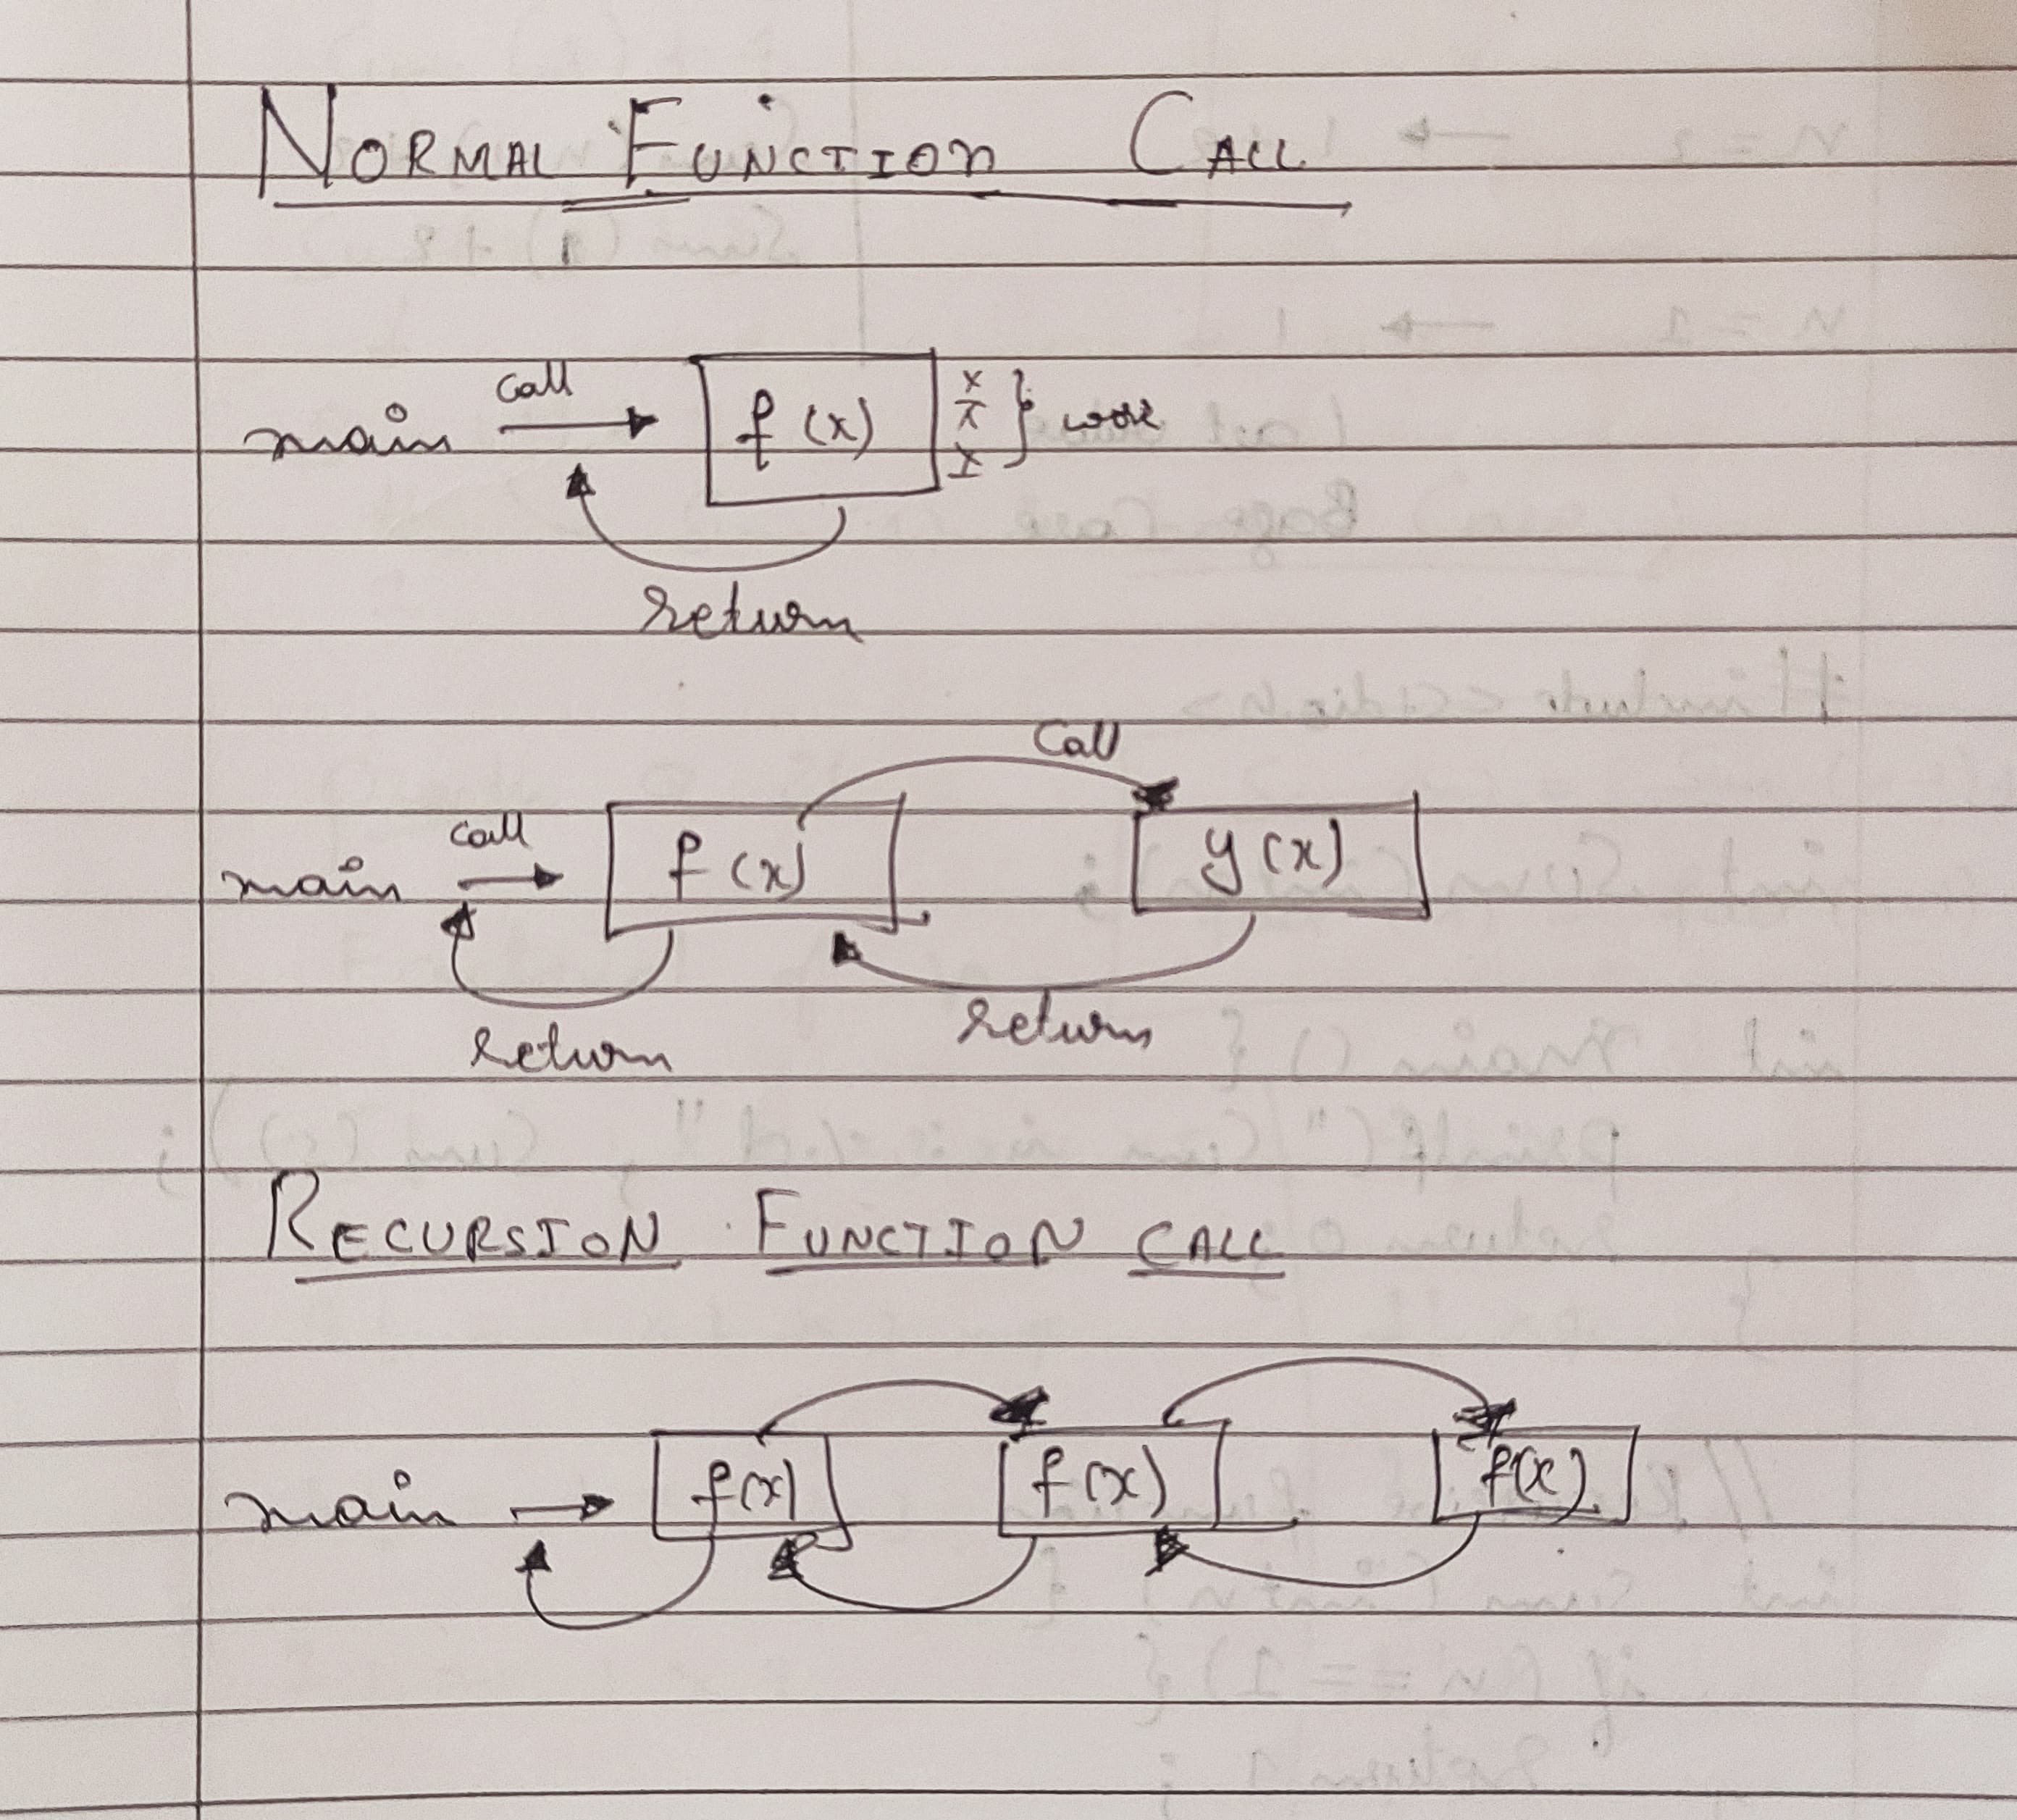 NORMAL FUNCTION CALL
call
main f (x) x x x } work
return
call
call
main f (x) y (x)
return
return
RECURSION FUNCTION CALL
main f(x) f (x) f(x)